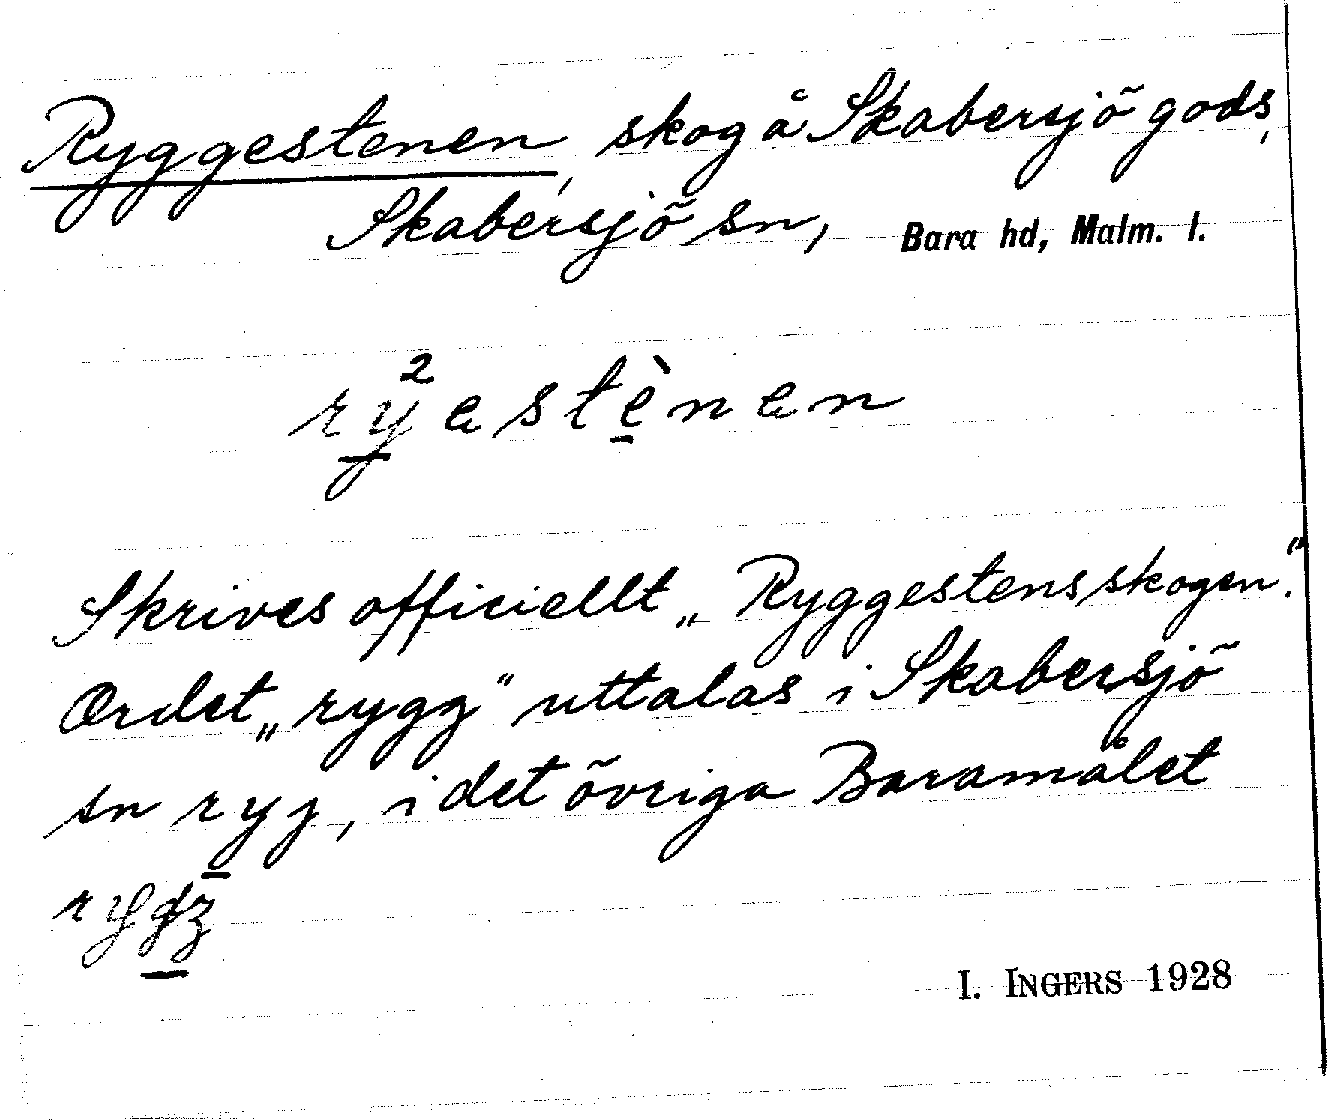 Ryggestenen, skog å Skabersjö gods,
Skabersjö sn, Bara hd, Malm. l.
ry²estènen
Skrives officiellt „Ryggestensskogen".
Ordet „rygg" uttalas i Skabersjö
sn ryj, i det övriga Baramålet
I. INGERS 1928